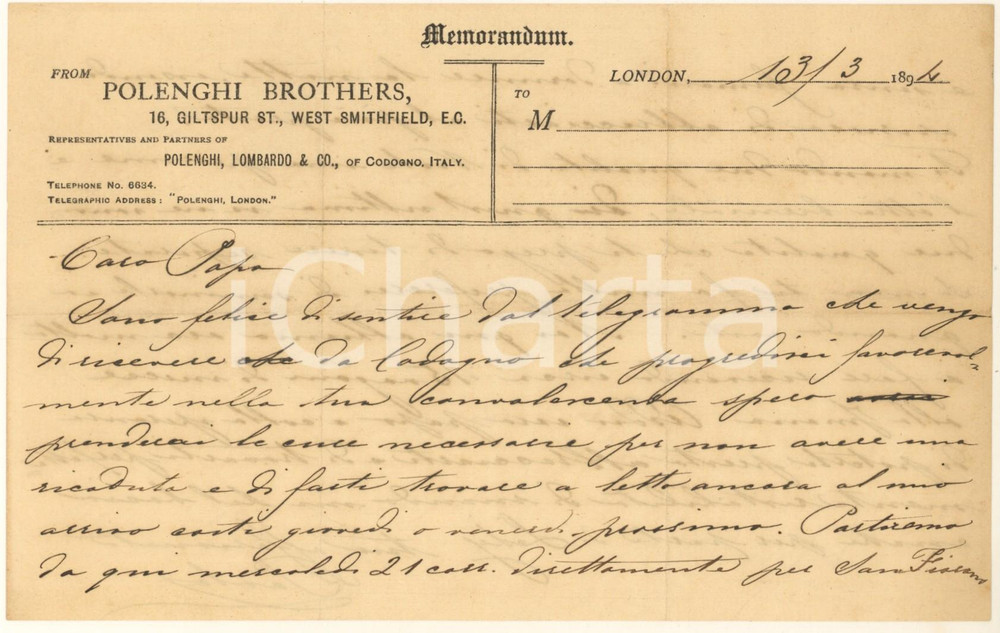 Memorandum.
FROM
POLENGHI BROTHERS,
16, GILTSPUR ST., WEST SMITHFIELD, E.C.
REPRESENTATIVES AND PARTNERS OF
POLENGHI, LOMBARDO & CO., OF CODOGNO, ITALY.
TELEPHONE NO. 6634.
TELEGRAPHIC ADDRESS: "POLENGHI, LONDON."
LONDON, 13/3 1894
TO
M
Caro Papa
Sono felice di sentire dal telegramma che vengo
di ricevere che da Codogno che progredisci favorevol=
mente nella tua convalescenza spero
prenderai le cure necessarie per non avere una
ricaduta e di farti trovare a letto ancora al mio
arrivo costi giovedi o venerdi prossimo. Partiremo
da qui mercoledi 21 corr. direttamente per San Fiorano
iCharta